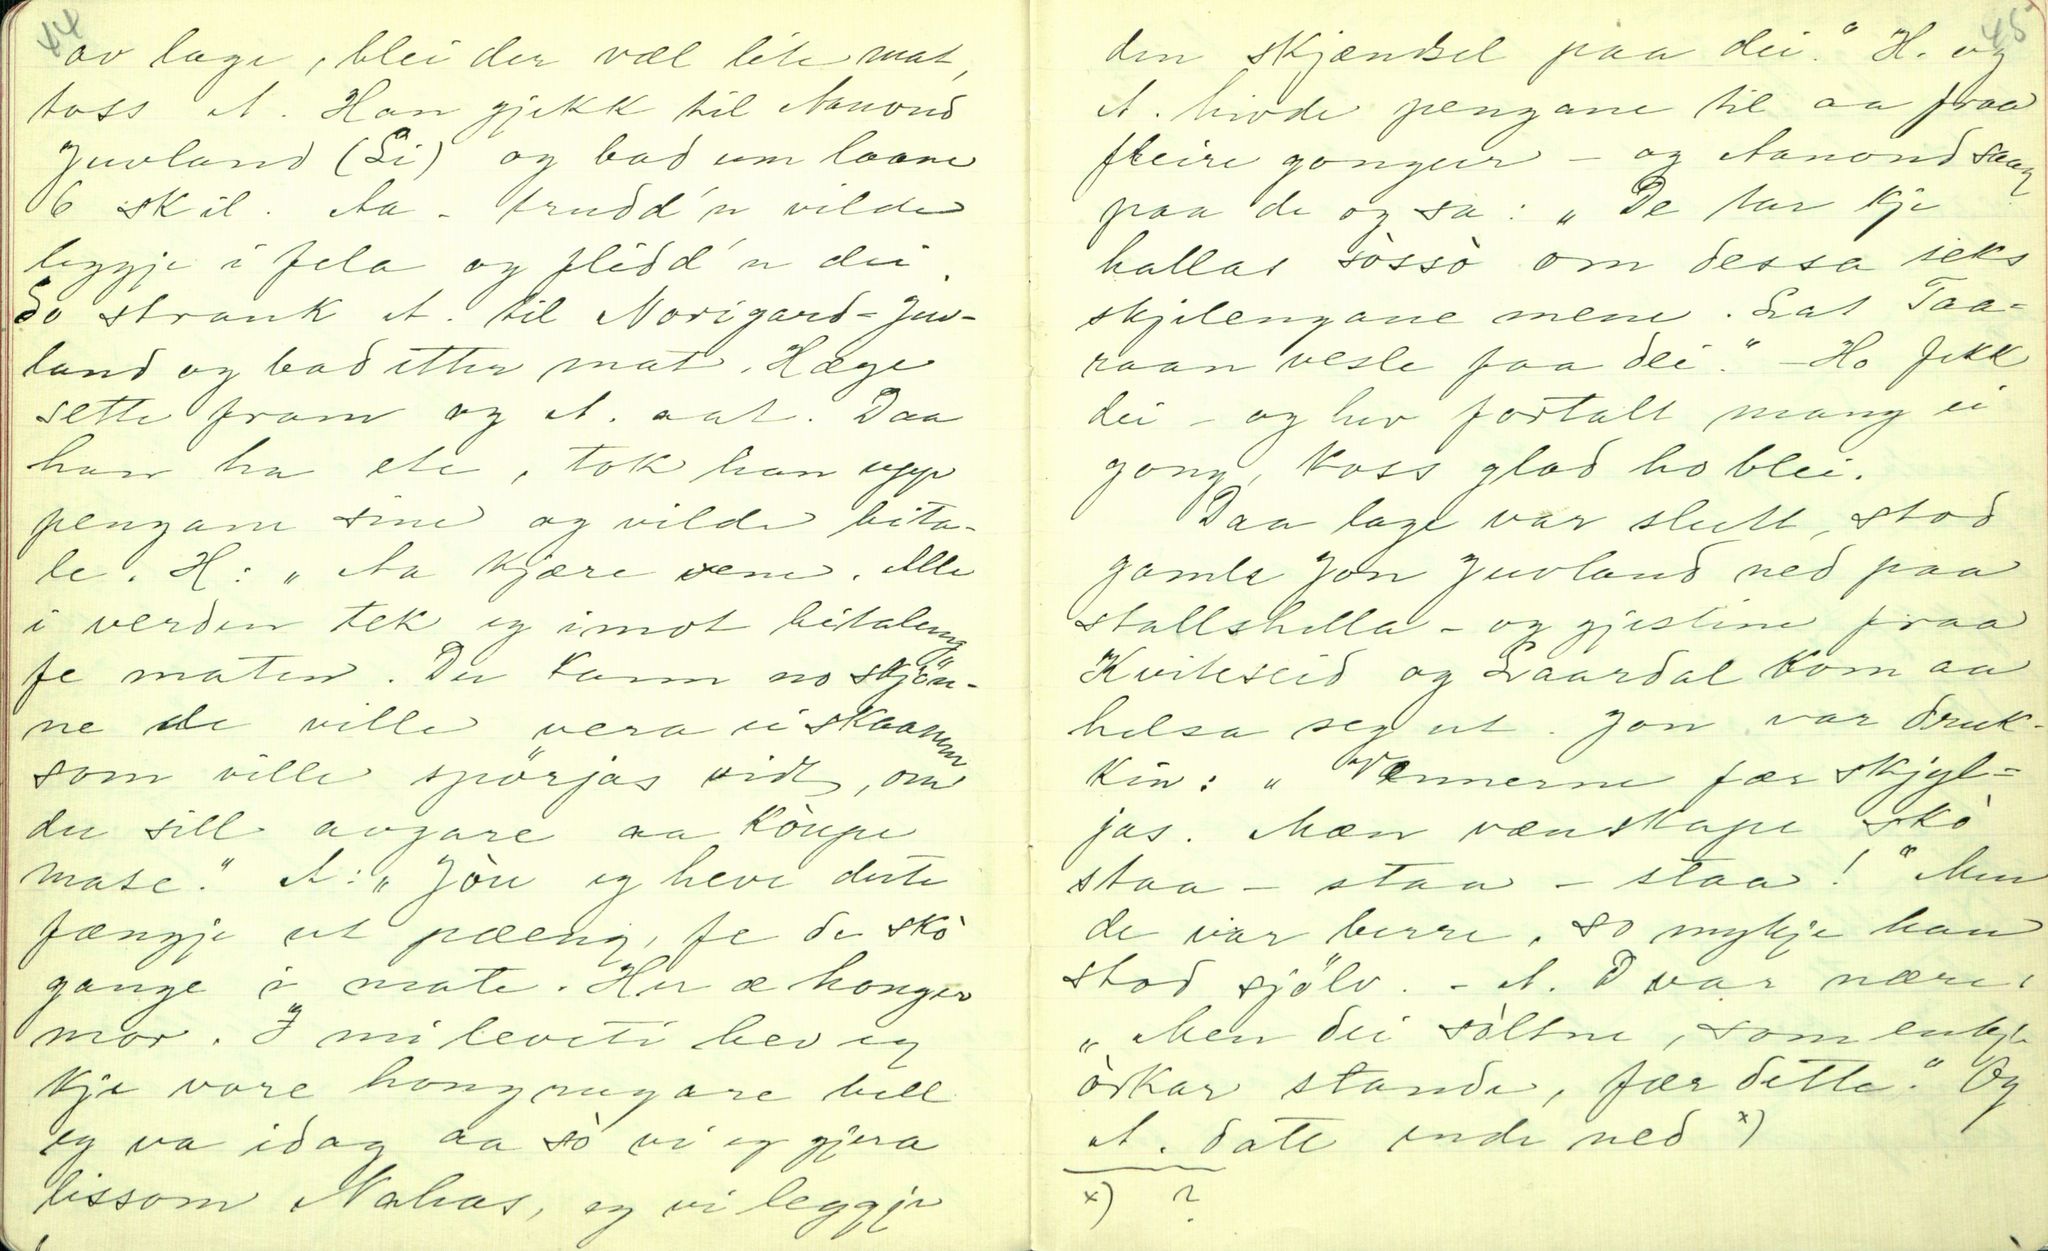 44
av lage, blei der væl lite mat,
toss A. Han gjekk til Aanond
Juvland (Li) og bad um laane
6 skil. Aa - trudd'n vilde
leggje i fela og flidd'n dei.
So strauk A. til Norigard-Juv-
land og bad etter mat. Hæge
sette fram og A. aat. Daa
han ha ete, tok han upp
pengane sine og vilde bita-
le. H: „Aa kjære vene. Alle
i verden tek eg imot bitaleng
fe maten. Du kann no skjön-
ne de ville vera ei skaamm
som ville spörjas vidt, om
du sill avgare aa kòupe
mate." A: „Jòu eg heve detti
fængje ut pæeng, fe de skò
gange i mate. Her æ honger
mor. I mi leveti hev eg
kje vore hongrugare hell
eg va idag aa sò vi eg gjera
lissom Nahas, eg vi leggje
45
den skjændsel paa dei." H. og
A. hivde pengane til aa fraa
fleire gongur - og Aanond saag
paa de og sa: „De tar kje
hallas sòssò om dessa seks
skjilengane mene. Lat Taa-
raan vesle faa dei." - Ho fekk
dei - og hev fortalt mang ei
gong, koss glad ho blei.
Daa lage var slutt, stod
gamle Jon Juvland ned paa
stallshella - og gjestine fraa
Kviteseid og Laardal kom aa
helsa seg ut. Jon var druk-
kin: „Vennerne fær skjyl-
jas. Mæn vænskape skò
staa - staa - staa!" Men
de var berre, so mykje han
stod sjölv. - A. D var nære:
„Men dei sòltne, som enkje
òrkar stande, fær dette." Og
A. datt ende ned x)
x) ?